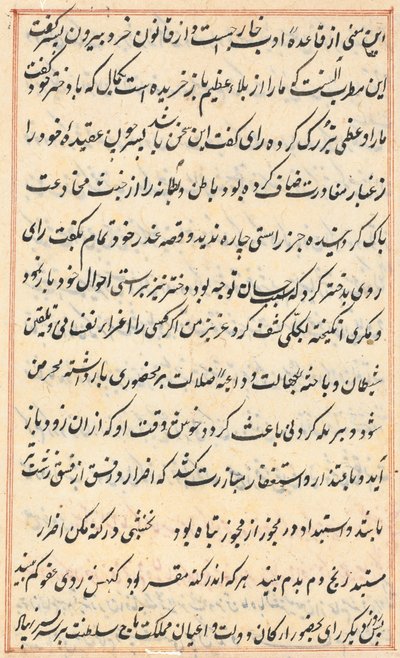 این سخن از قاعدهٔ ادب خارج است و از قانون خرد بیرون پسر گفت
این مطرب آنست که ما را از بلاء عظیم باز خریده است بکمال که با دختر خود گفت
ما را وعظی بزرک کرده رای کفت این سخن باشد پسر چون عقیدهٔ خود را
ز غبار معاودت صاف کرده بود باطن و بطانه را از خبث مخادعت
پاک کردانیده جز راستی چاره ندید و قصه غدر خود تمام بکفت رای
روی بدختر کرد که حال توجه بود دختر نیز براستی احوال خود باز نمود
و مکری انکیخته بکلی کشف کرد عزیز من اکر کسی را اغراء نفسانی و تلقین
شیطان و باعثه جهالت و داعیهٔ ضلالت بر محضوری بارداشته محرص
شود و بر مله کردنی باعث کردد خوش وقت او که از ان زود باز
آید و باعتذار و استغفار مبادرت کند که اضرار در فسق از فسق زشت تر
باشد و استبداد در فجور از فجور تباه بود نخشبی در کنه مکن اضرار
مستبد رنج دم بدم بیند هر که اندر کنه مقر بود کنهش روی عفو کم بیند
پس روز دیکر رای بحضور ارکان دولت و اعیان مملکت تاج سلطنت بر سر پسر